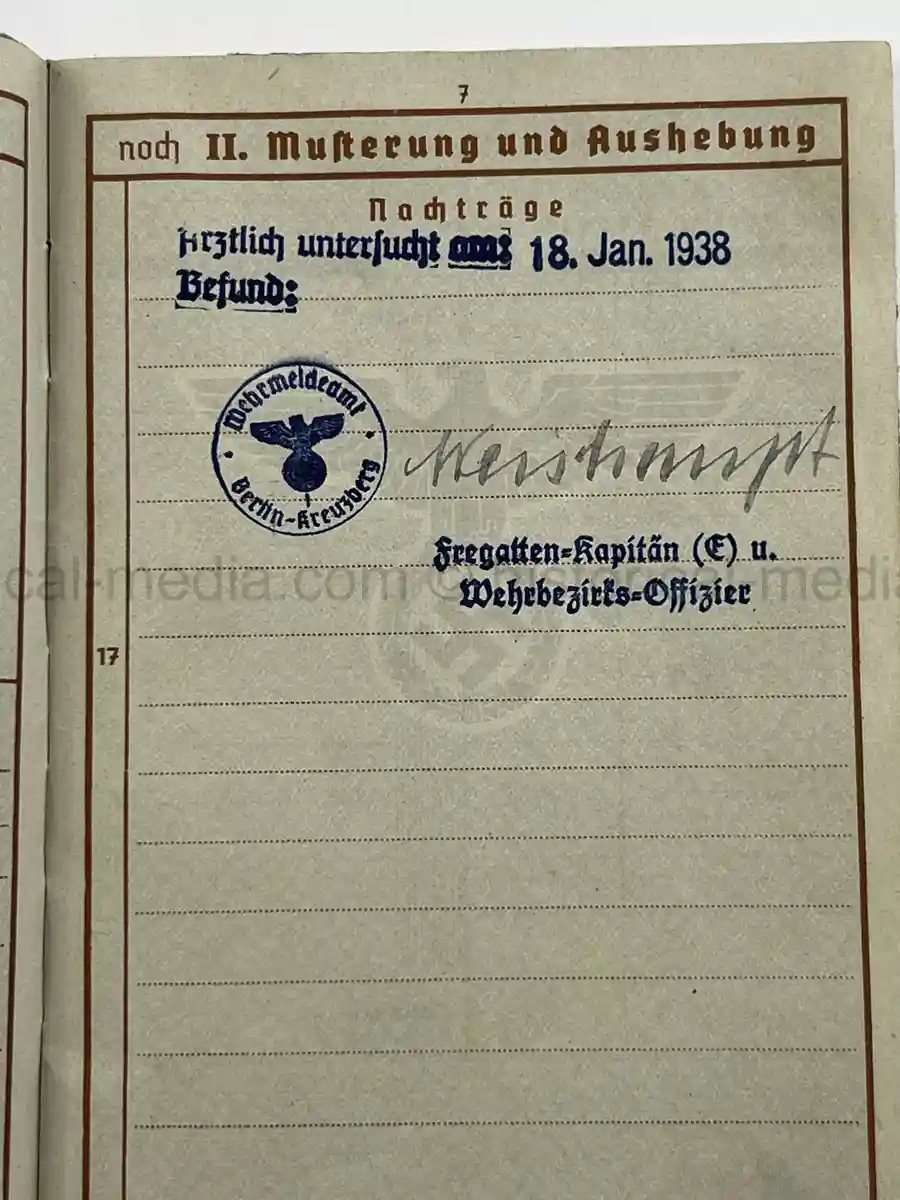 7
noch II. Musterung und Aushebung
Nachträge
Ärztlich untersucht am: 18. Jan. 1938
Befund:
Wehrmeldeamt
Berlin-Kreuzberg
Fregatten-Kapitän (E) u.
cal-media.com ©
media
Wehrbezirks-Offizier
17